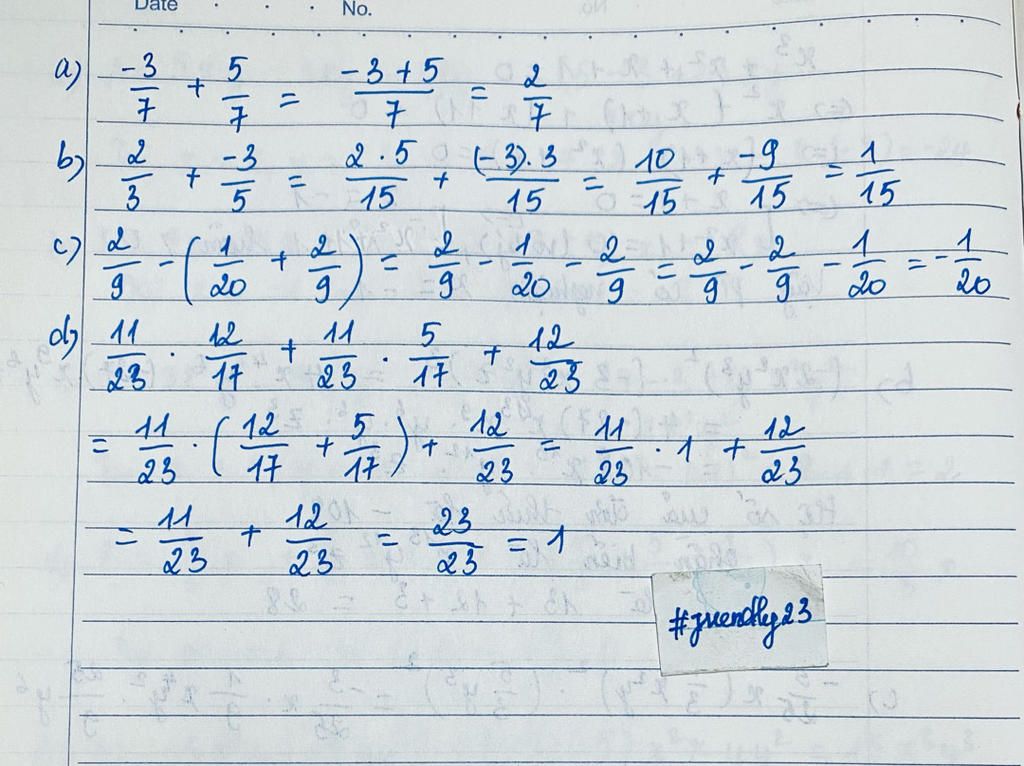 Date . . . No.
a) -3/7 + 5/7 = (-3+5)/7 = 2/7
b) 2/3 + -3/5 = 2·5/15 + (-3).3/15 = 10/15 + -9/15 = 1/15
c) 2/9 - (1/20 + 2/9) = 2/9 - 1/20 - 2/9 = 2/9 - 2/9 - 1/20 = -1/20
d) 11/23 · 12/17 + 11/23 · 5/17 + 12/23
= 11/23 · (12/17 + 5/17) + 12/23 = 11/23 · 1 + 12/23
= 11/23 + 12/23 = 23/23 = 1